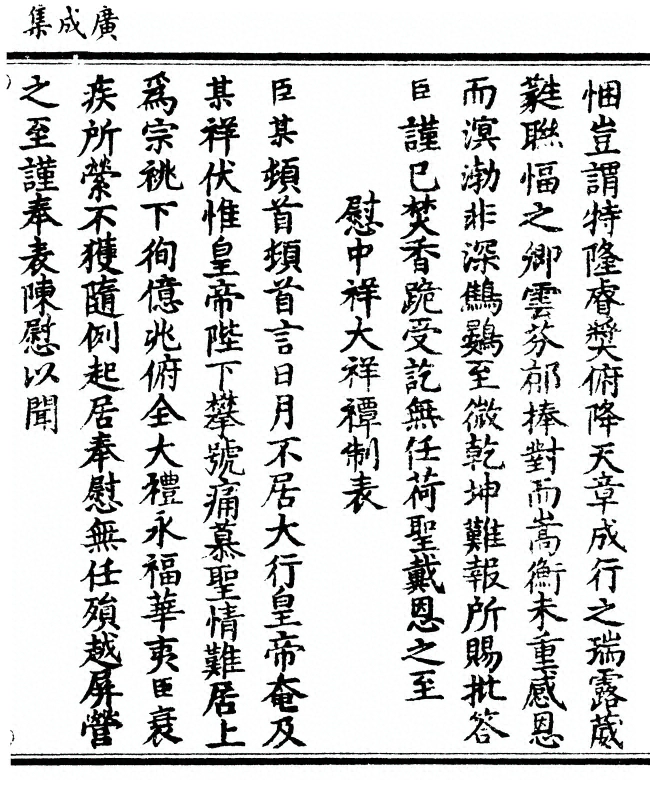 廣成集
悃豈謂特隆睿奬俯降天章成行之瑞露葳
蕤聯幅之卿雲芬郁捧對而嵩衡未重感恩
而溟渤非深鷦鷃至微乾坤難報所賜批答
臣謹已焚香跪受訖無任荷聖戴恩之至
慰中祥大祥禫制表
臣某頓首頓首言日月不居大行皇帝奄及
某祥伏惟皇帝陛下攀號痛慕聖情難居上
爲宗祧下徇億兆俯全大禮永福華夷臣衰
疾所縈不獲隨例起居奉慰無任殞越屏營
之至謹奉表陳慰以聞